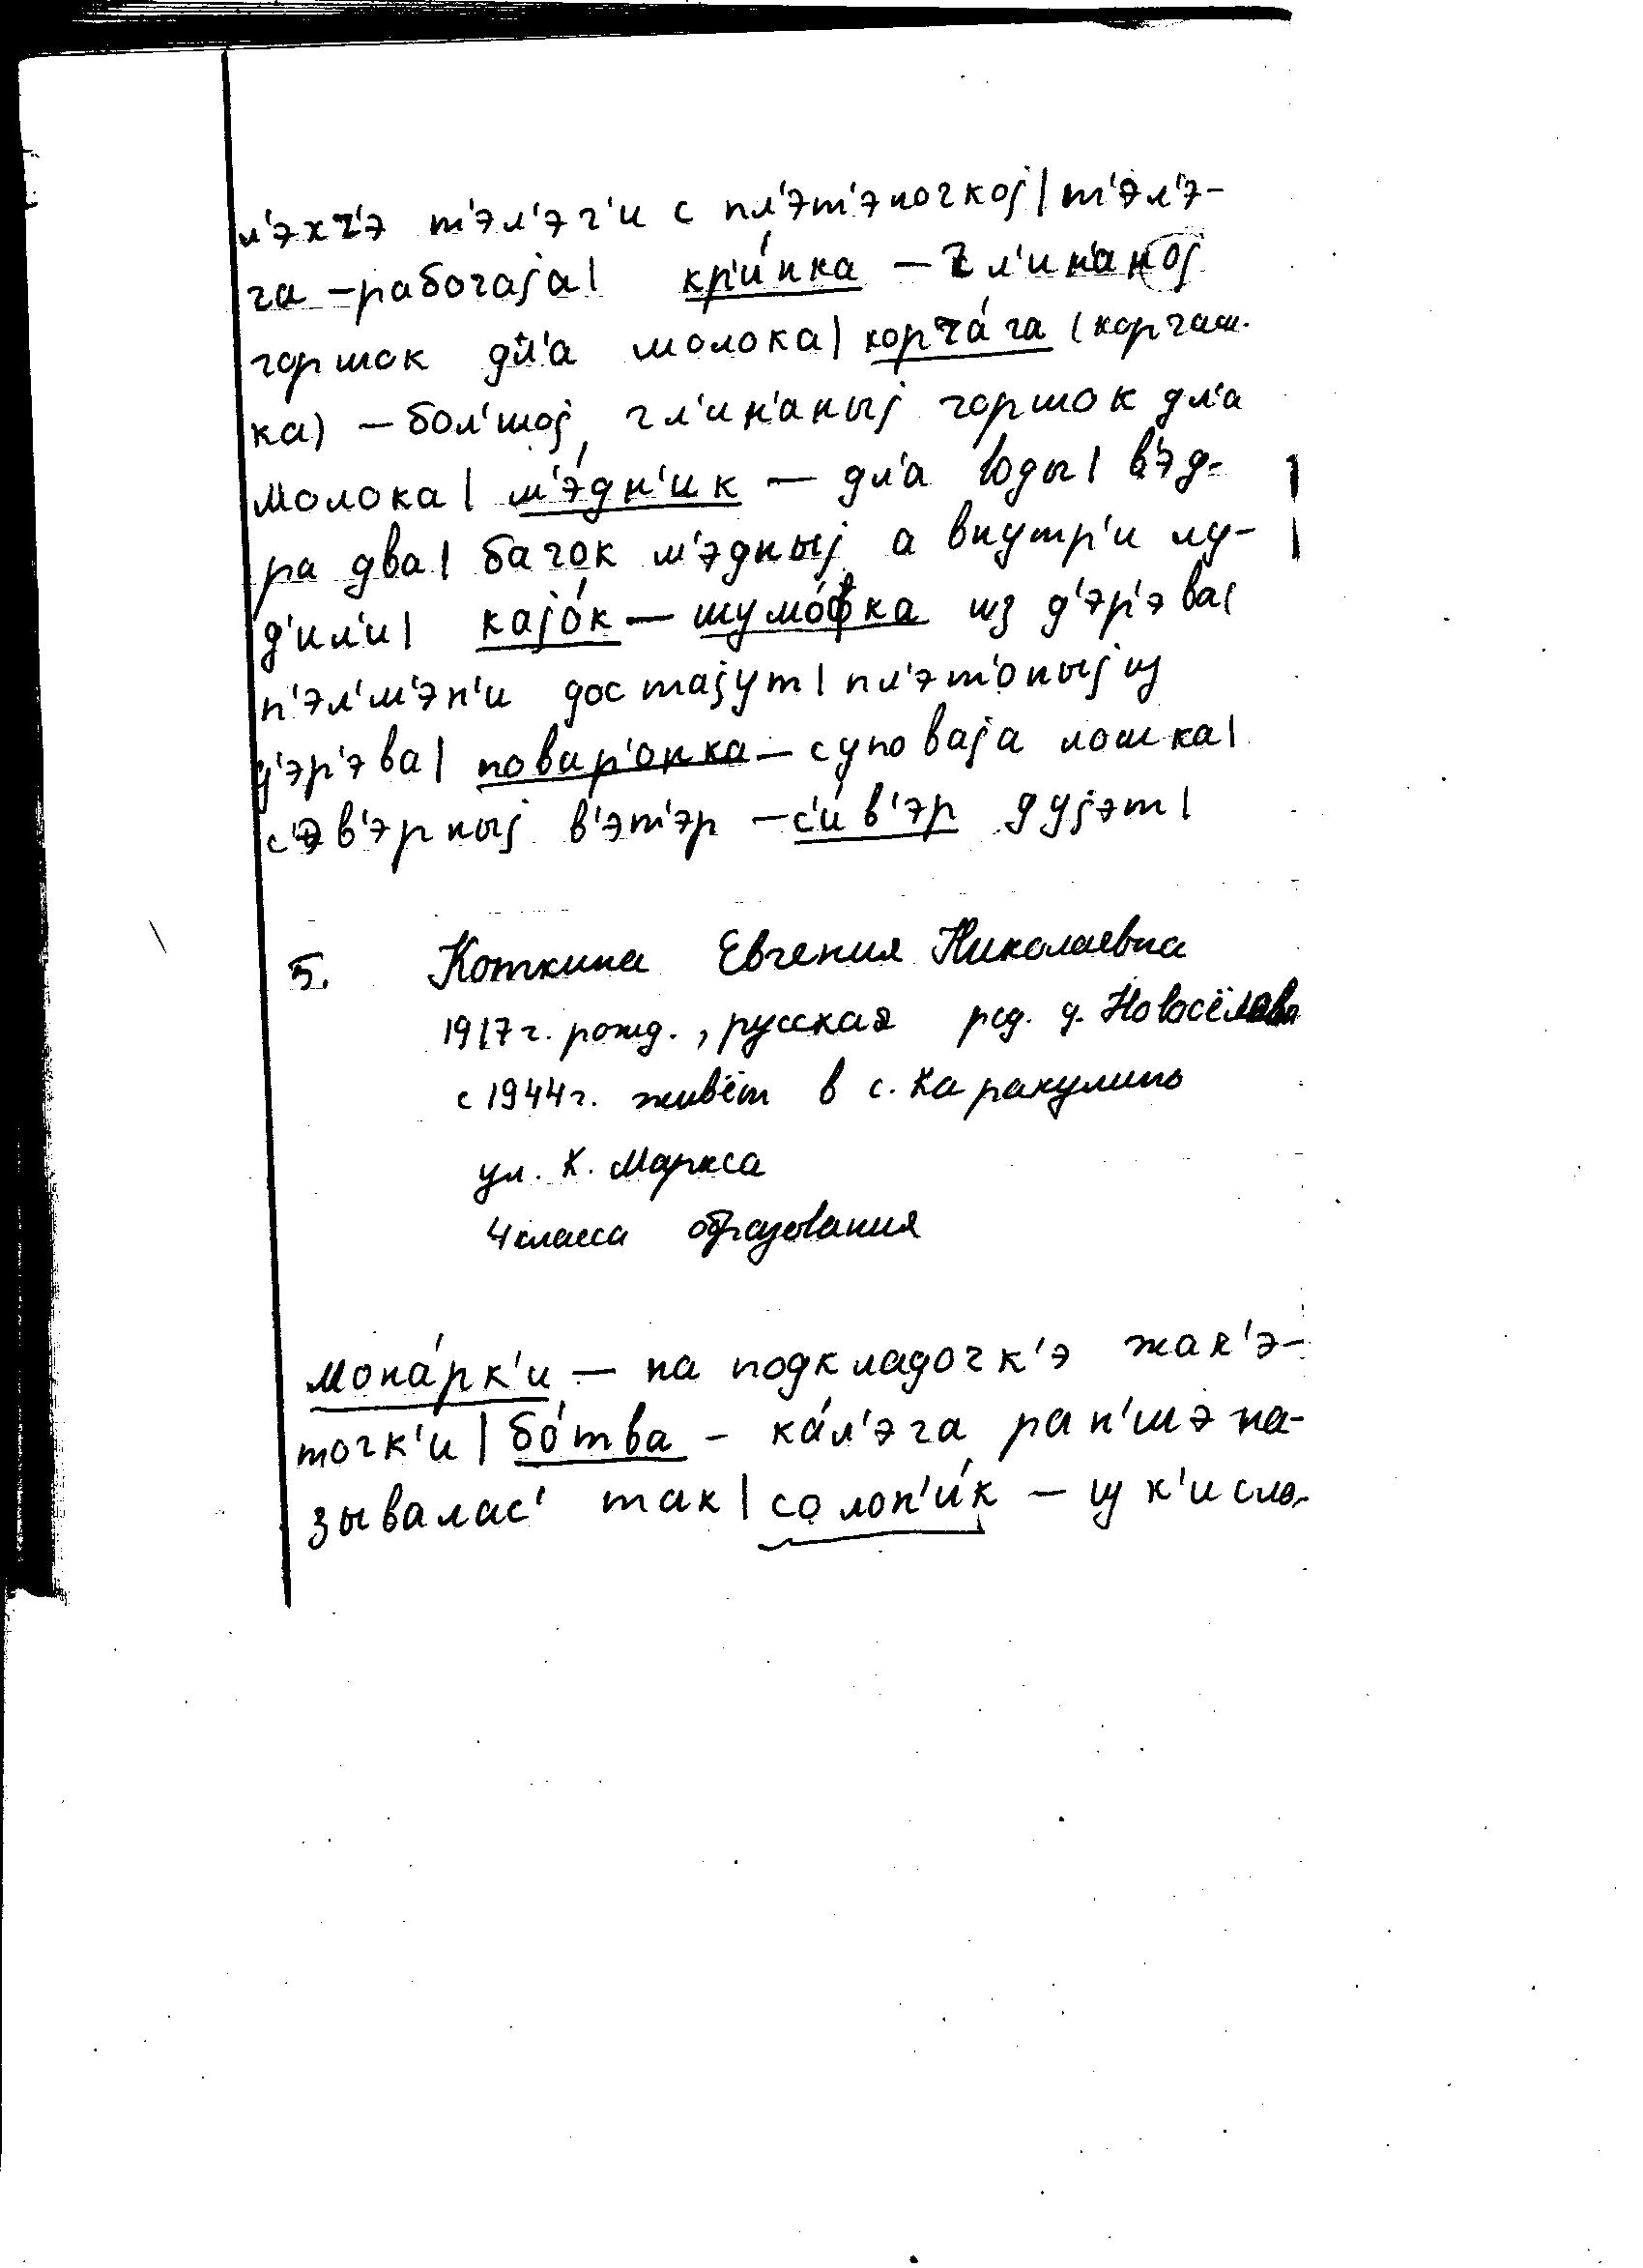 л'эхч'э т'эл'эг'и с пл'эт'эночкоj| т'эл'э-
га – рабочаjа| кр'и́нка – гл'ин'аноj
горшок дл'а молока| корча́га (корчаш-
ка) – бол'шоj гл'ин'аныj горшок дл'а
молока| м'э́дн'ик – дл'а воды| в'эд-
ра два| бачок м'эдныj а внутр'и лу-
д'ил'и| каjо́к – шумо́фка из д'эр'эва|
п'эл'м'эн'и достаjут| пл'эт'оныj из
д'эр'эва| повар'онка – суповаjа лошка|
с'эв'эрныj в'эт'эр – с'и́в'эр дуjэт|
5. Коткина Евгения Николаевна
1917 г. рожд., русская род. д. Новосёлово
с 1944 г. живёт в с. Каракулино
ул. К. Маркса
4 класса образования
мона́рк'и – на подкладочк'э жак'э-
точк'и| бо́тва – ка́л'эга ран'шэ на-
зывалас' так| солон'и́к – из к'исло-